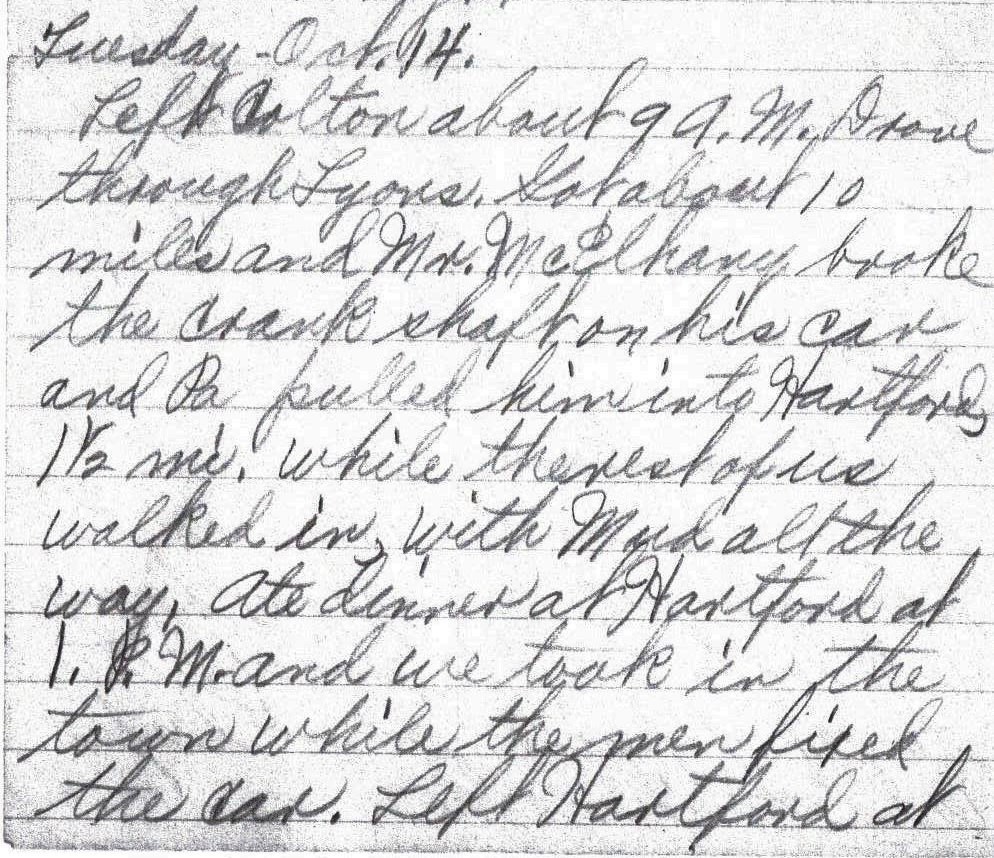 Tuesday - Oct. 14.
Left Colton about 9 A.M. Drove
through Lyons. Got about 10
miles and Mr. McElhany broke
the crank shaft on his car
and Pa pulled him into Hartford,
1½ mi. while the rest of us
walked in, with Mud all the
way. Ate dinner at Hartford at
1. P.M. and we took in the
town while the men fixed
the car. Left Hartford at